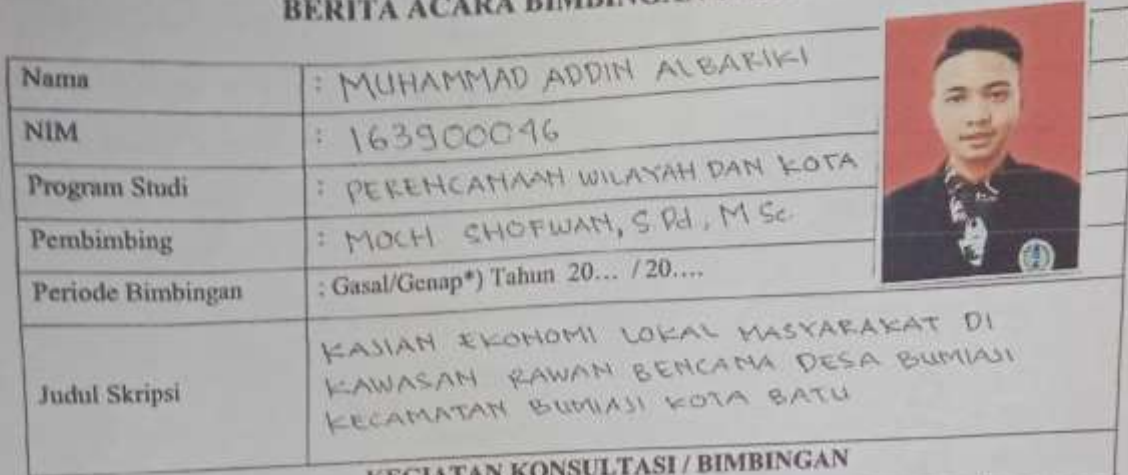 BERITA ACARA BIMBINGAN
Nama : MUHAMMAD ADDIN ALBARIKI
NIM : 163900046
Program Studi : PERENCANAAN WILAYAH DAN KOTA
Pembimbing : MOCH SHOFWAN, S.Pd., M Sc.
Periode Bimbingan : Gasal/Genap*) Tahun 20... / 20....
Judul Skripsi
KAJIAN EKONOMI LOKAL MASYARAKAT DI
KAWASAN RAWAN BENCANA DESA BUMIAJI
KECAMATAN BUMIAJI KOTA BATU
KEGIATAN KONSULTASI / BIMBINGAN